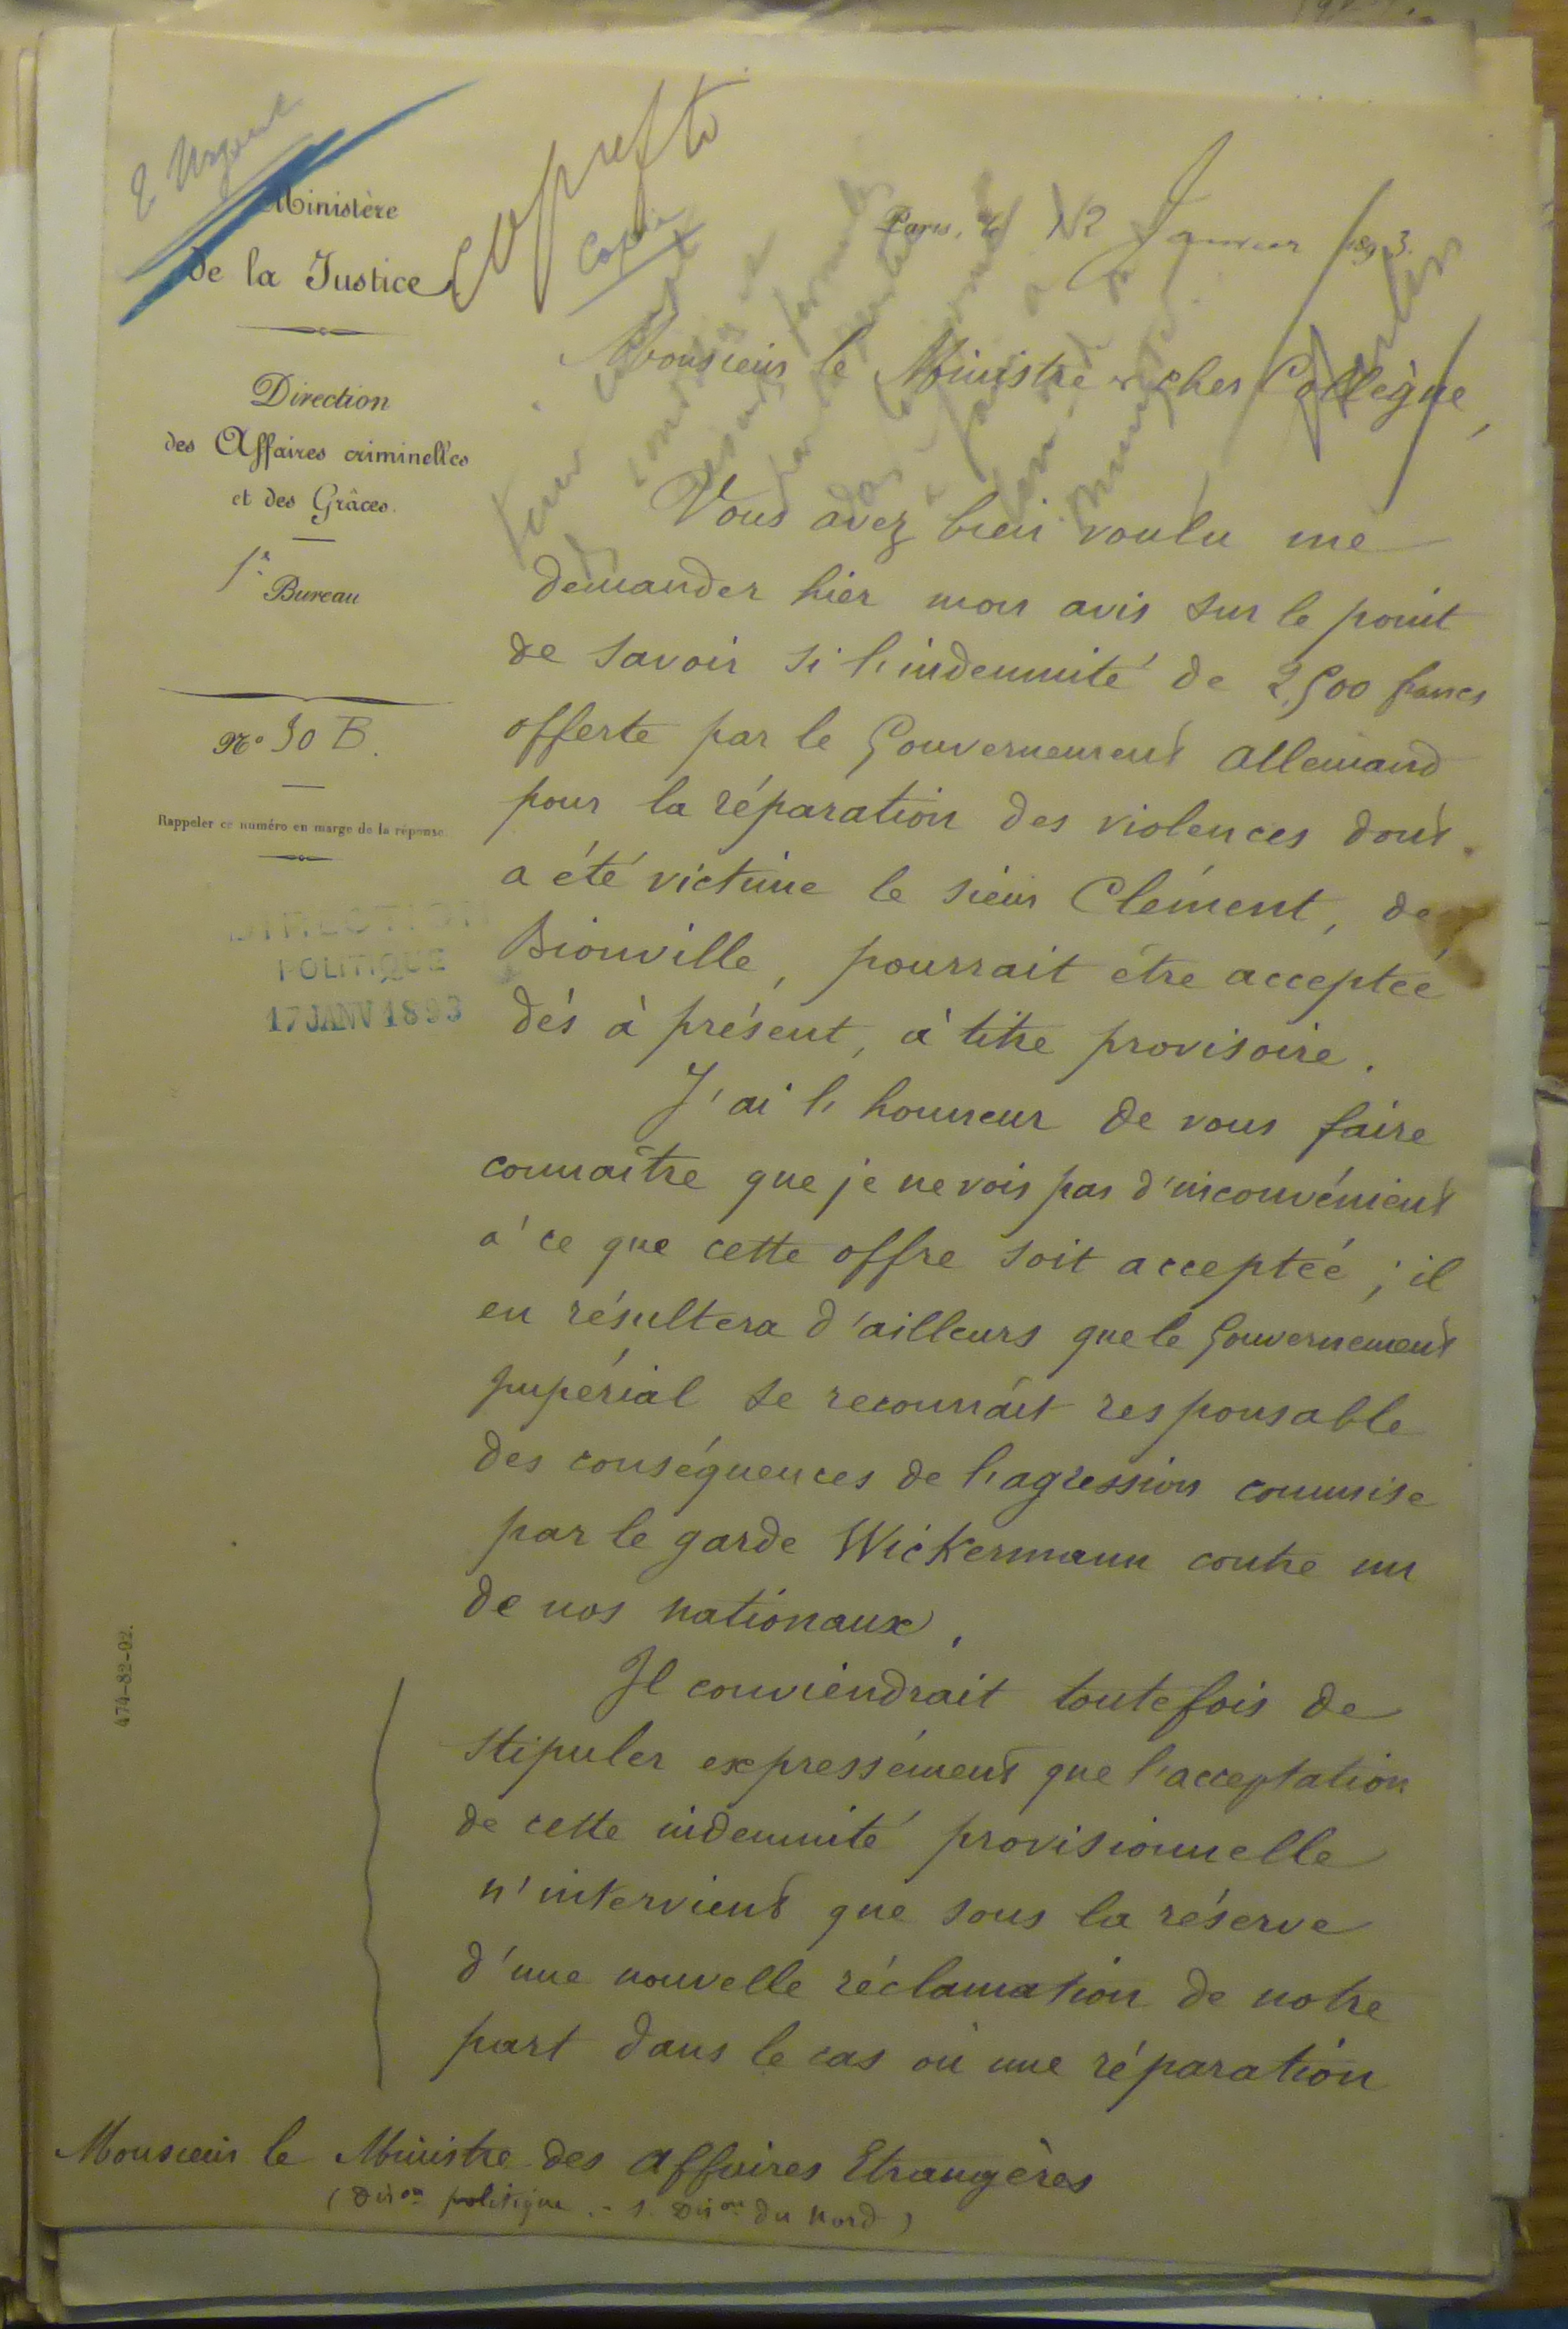 Urgent
Ministère
de la Justice
Direction
des Affaires criminelles
et des Grâces.
1er
Bureau
No 30 B.
Rappeler ce numéro en marge de la réponse
DIRECTION
POLITIQUE
17 JANV 1893
474-82-92.
Copie
Paris, le 12 Janvier 1893.
Monsieur le Ministre et cher Collègue,
Vous avez bien voulu me
demander hier mon avis sur le point
de savoir si l'indemnité de 2,500 francs
offerte par le Gouvernement Allemand
pour la réparation des violences dont
a été victime le sieur Clément, de
Bionville, pourrait être acceptée
dès à présent, à titre provisoire.
J'ai l'honneur de vous faire
connaître que je ne vois pas d'inconvénient
à ce que cette offre soit acceptée ; il
en résultera d'ailleurs que le Gouvernement
Impérial se reconnaît responsable
des conséquences de l'agression commise
par le garde Wickermann contre un
de nos nationaux.
Il conviendrait toutefois de
stipuler expressément que l'acceptation
de cette indemnité provisionnelle
n'intervient que sous la réserve
d'une nouvelle réclamation de notre
part dans le cas où une réparation
Monsieur le Ministre des Affaires Etrangères
(Dion politique . - S. Dion du Nord)